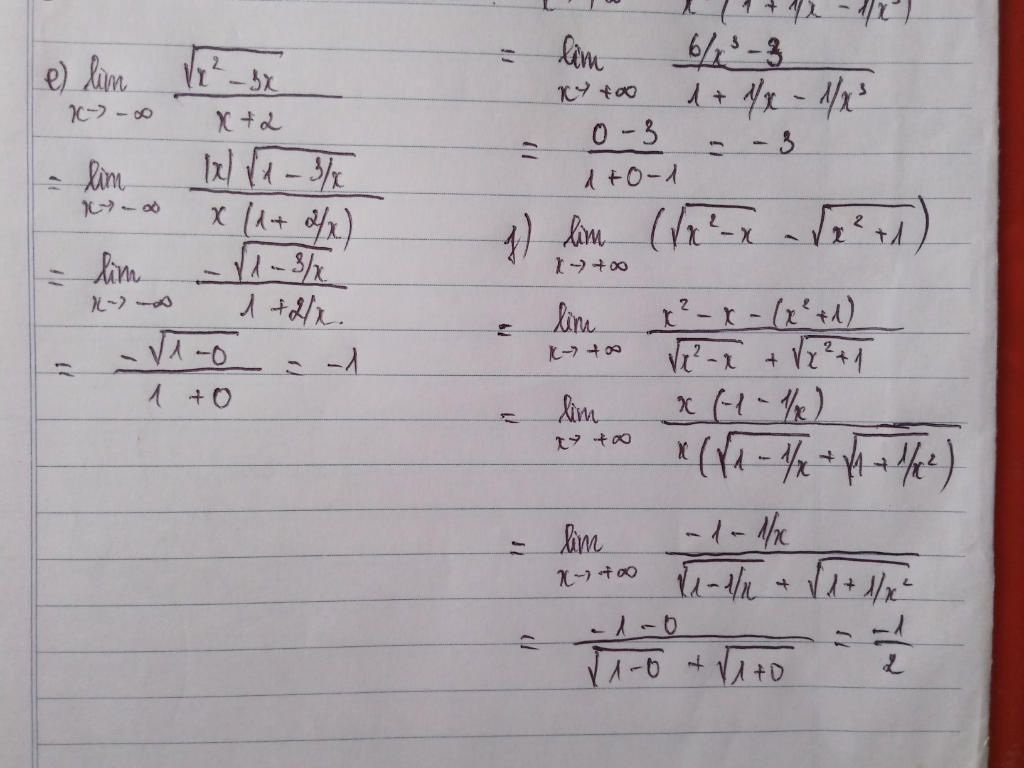 e) lim x→-∞ √(x² - 3x) / (x+2)
= lim x→-∞ |x| √(1 - 3/x) / x (1 + 2/x)
= lim x→-∞ -√(1 - 3/x) / 1 + 2/x.
= -√(1-0) / 1 + 0 = -1
x (1 + 1/x - 1/x³)
= lim x→+∞ (6/x³ - 3) / (1 + 1/x - 1/x³)
= (0 - 3) / (1+0-1) = -3
f) lim x→+∞ (√(x² - x) - √(x² + 1))
= lim x→+∞ (x² - x - (x²+1)) / (√(x² - x) + √(x²+1))
= lim x→+∞ x (-1 - 1/x) / x (√(1 - 1/x) + √(1 + 1/x²))
= lim x→+∞ (-1 - 1/x) / (√(1-1/x) + √(1+1/x²))
= (-1 - 0) / (√(1-0) + √(1+0)) = -1/2